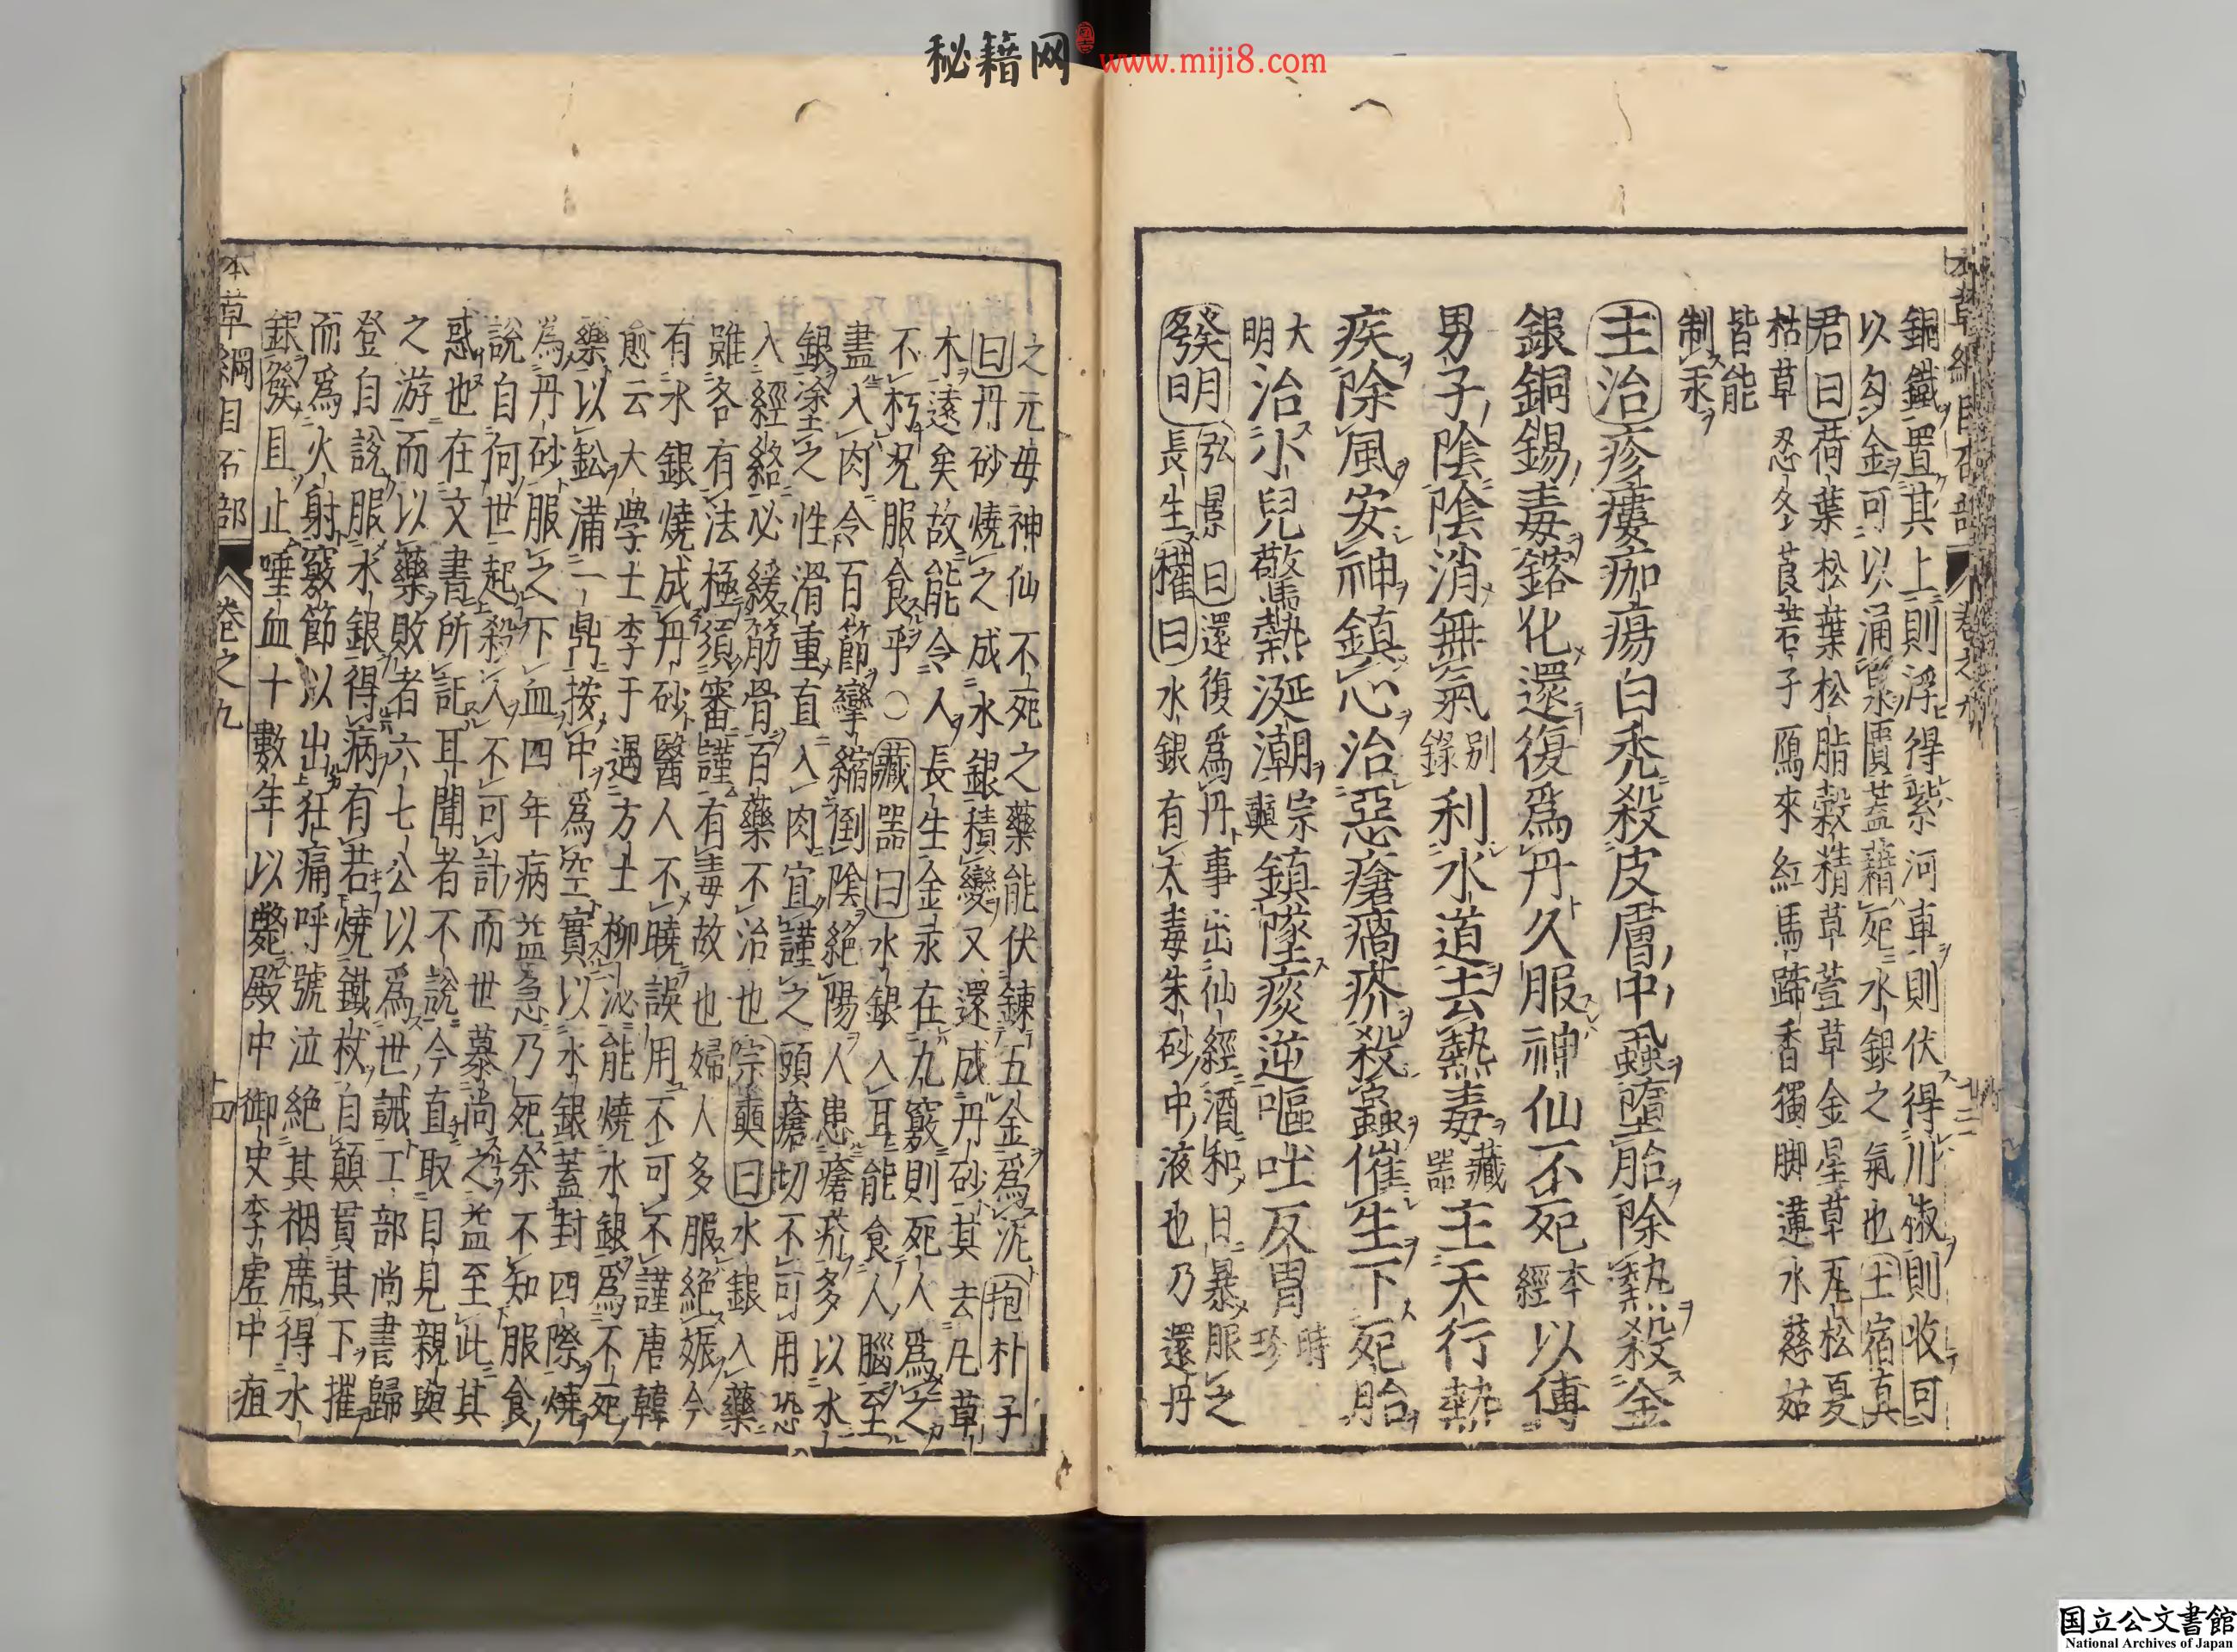 秘籍网 www.miji8.com
銅鐵置其上則浮得紫河車則伏得川椒則收可
以勾金可以涌泉匱蓋藉死水銀之氣也土宿真
君曰荷葉松葉松脂穀精草萱草金星草瓦松夏
枯草忍冬莨菪子鴈來紅馬蹄香獨脚蓮水慈姑
皆能
制汞
主治疹瘻痂瘍白禿殺皮膚中蝨墮胎除熱殺金
銀銅錫毒鎔化還復爲丹久服神仙不死本經以傅
男子陰陰消無氣别錄利水道去熱毒藏器主天行熱
疾除風安神鎮心治惡瘡瘑疥殺蟲催生下死胎
大明治小兒驚熱涎潮宗奭鎮墜痰逆嘔吐反胃時珍
發明弘景曰還復爲丹事出仙經酒和日暴服之
長生權曰水銀有大毒朱砂中液也乃還丹
之元母神仙不死之藥能伏鍊五金爲泥抱朴子
曰丹砂燒之成水銀積變又還成丹砂其去凡草
木遠矣故能令人長生金汞在九竅則死人爲之
不朽況服食乎○藏器曰水銀入耳能食人腦至
盡入肉令百節攣縮倒陰絶陽人患瘡疥多以水
銀塗之性滑重直入肉宜謹之頭瘡切不可用恐
入經絡必緩筋骨百藥不治也宗奭曰水銀入藥
雖各有法極須審謹有毒故也婦人多服絶娠今
有水銀燒成丹砂醫人不曉誤用不可不謹唐韓
愈云大學士李于遇方士柳泌能燒水銀爲不死
藥以鉛滿一鼎按中爲空實以水銀蓋封四際燒
爲丹砂服之下血四年病益急乃死余不知服食
說自何世起殺人不可計而世慕尚之益至此其
惑也在文書所記耳聞者不說今直取目見親與
之游而以藥敗者六七公以爲世誡工部尚書歸
登自說服水銀得病有若燒鐵杖自顛貫其下摧
而爲火射竅節以出狂痛呼號泣絶其裀席得水
銀發且止唾血十數年以斃殿中御史李虚中疽
本草綱目石部 卷之九
十四
国立公文書館
National Archives of Japan